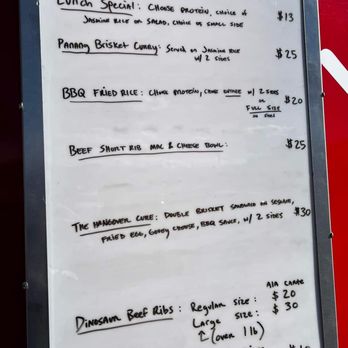 Lunch Special: Choose Protein, choice of $13
Jasmine Rice or Salad, choice of small side
Panang Brisket Curry: Served on Jasmine Rice $25
w/ 2 sides
BBQ Fried Rice: Choose Protein, Come w/ 2 sides $20
or
Full Size
no sides
Beef Short Rib Mac & Cheese Bowl: $25
The Hangover Cure: Double Brisket Sandwich on Sesame, $30
Fried Egg, Gooey Cheese, BBQ Sauce, w/ 2 sides
Ala Carte
Dinosaur Beef Ribs: Regular Size: $20
Large Size: $30
(over 1 lb)